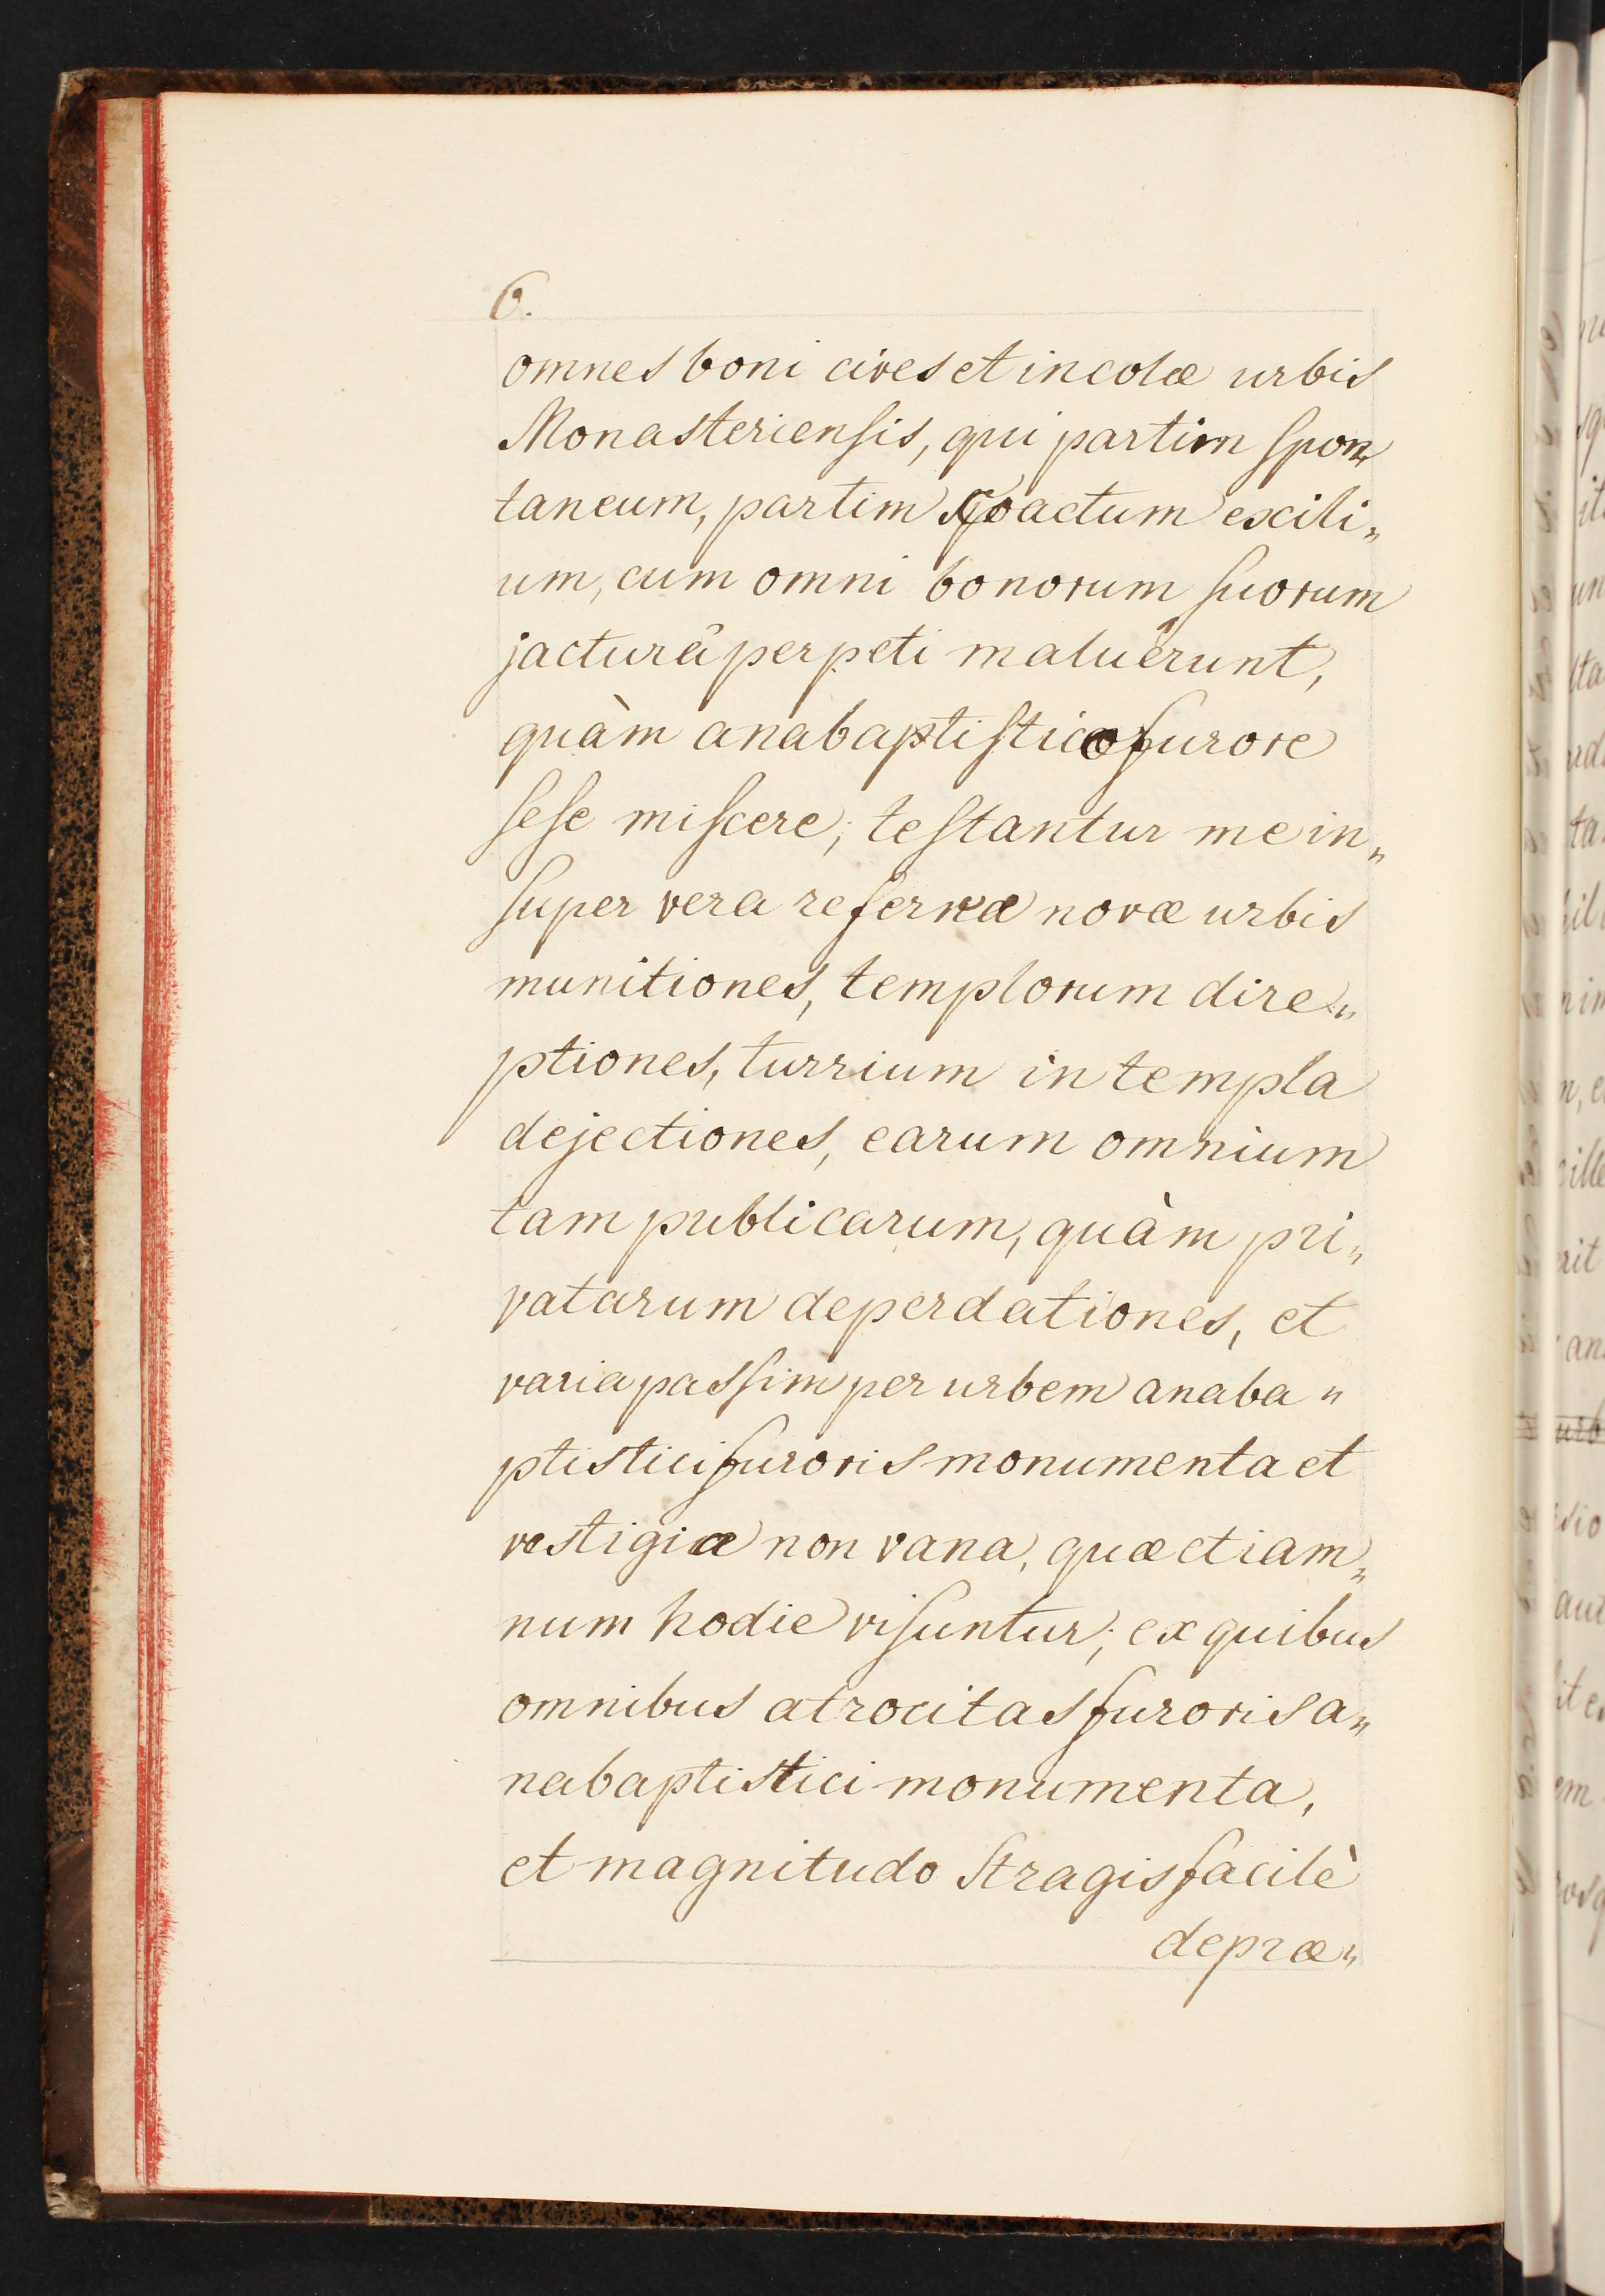 6.
omnes boni cives et incolæ urbis
Monasteriensis, qui partim spon„
taneum, partim coactum exili„
um, cum omni bonorum suorum
jacturâ perpeti maluêrunt,
quàm anabaptistico furore
sese miscere; testantur me in„
super vera referre novæ urbis
munitiones, templorum dire„
ptiones, turrium in templa
dejectiones, earum omnium
tam publicarum, quàm pri„
vatarum deperdationes, et
varia passim per urbem anaba„
ptistici furoris monumenta et
vestigia non vana, quæ etiam„
num hodie visuntur; ex quibus
omnibus atrocitas furoris a„
nabaptistici monumenta,
et magnitudo stragis facilè
depræ„